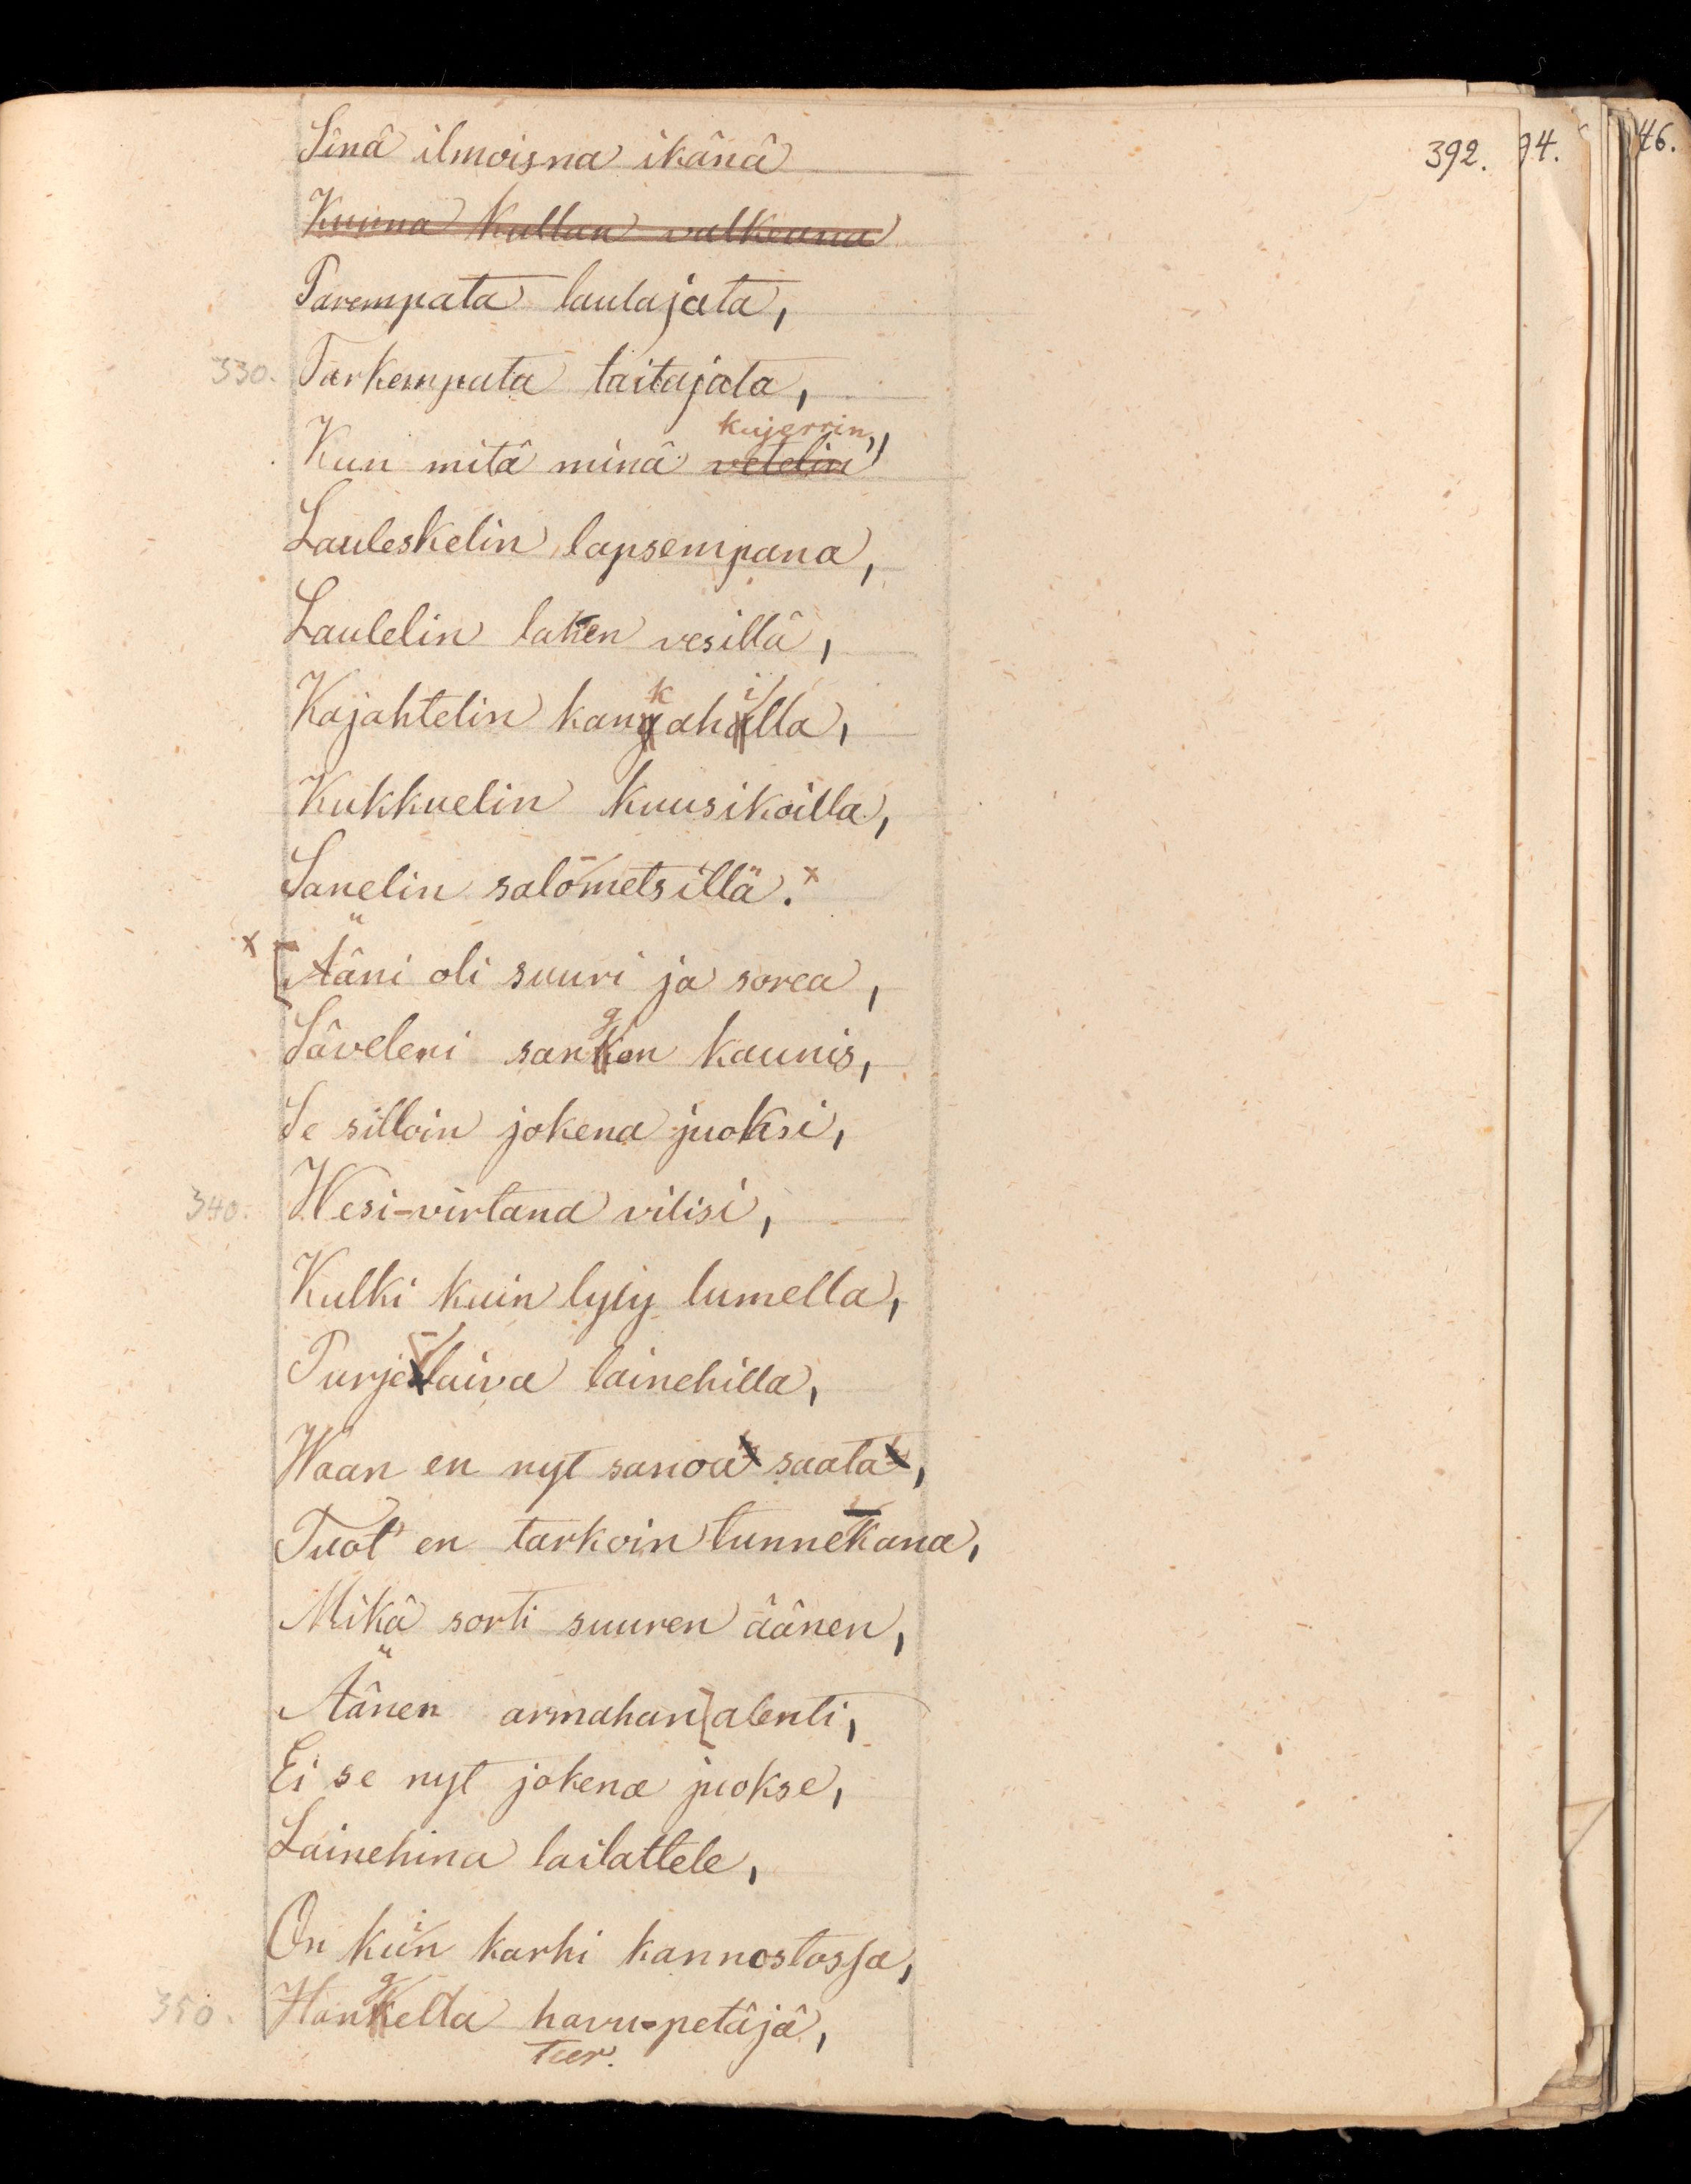 392.
94.
46.
Sinä ilmoisna ikänä
Kuuna kullan valkeana
Parempata laulajata,
330. Tarkempata taitajata,
kujerrin,
Kun mitä minä vetelin
Lauleskelin lapsempana,
Laulelin laken vesillä,
Kajahtelin kankahilla,
Kukkuelin kuusikoilla,
Sanelin salo-metsillä. x
x [Ääni oli suuri ja sorea,
Säveleni sangen kaunis,
Se silloin jokena juoksi,
340. Wesi-virtana vilisi,
Kulki kuin lyly lumella,
Purje-laiva lainehilla,
Waan en nyt sanoa saata,
Tuot' en tarkoin tunnekana,
Mikä sorti suuren äänen,
Äänen armahan [alenti,
Ei se nyt jokena juokse,
Lainehina lailattele,
On kuin karhi kannostossa,
350. Hangella havu-petäjä,
Tuer.